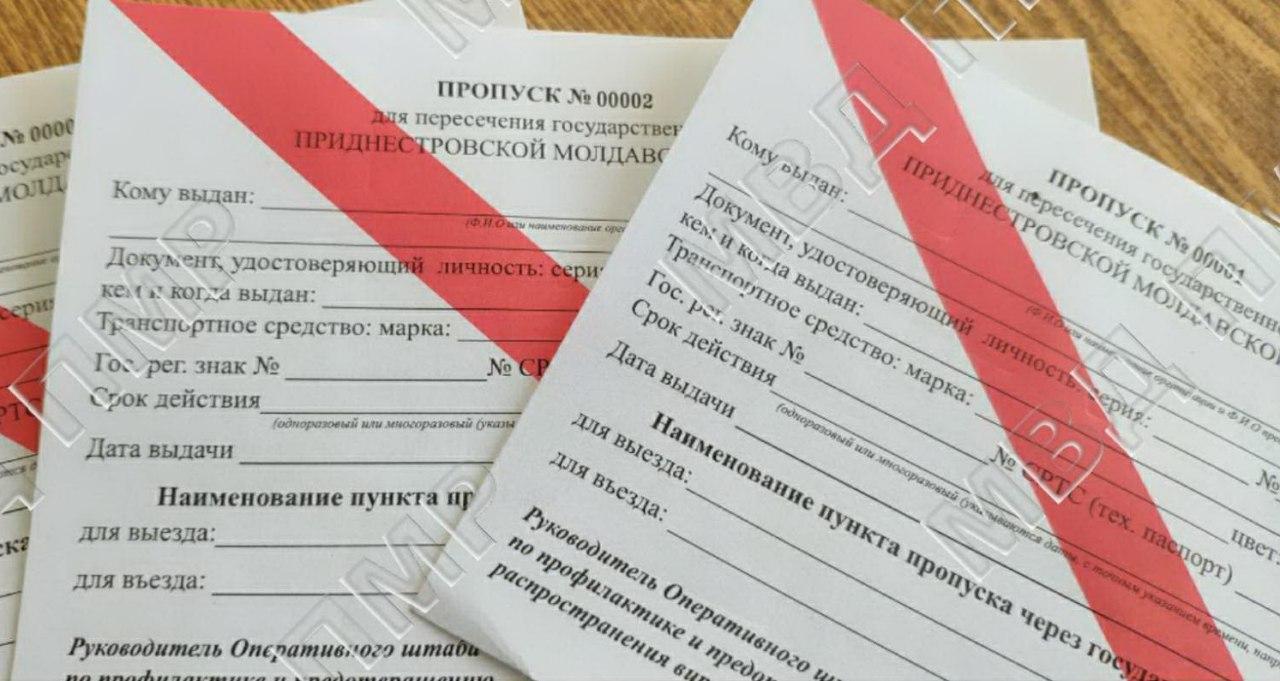 № 0000
осудар
МОЛДА
ПРОПУСК № 00002
для пересечения государствен
ПРИДНЕСТРОВСКОЙ МОЛДАВС
Кому выдан:
(Ф.И.О или наименование орга
Документ, удостоверяющий личность: сери
кем и когда выдан:
Транспортное средство: марка:
Гос. рег. знак № № СР
Срок действия
(одноразовый или многоразовый (указы
Дата выдачи
Наименование пункта пр
для выезда:
для въезда:
Руководитель Оперативного штаба
по профилактике и предотвращению
ПРОПУСК № 00001
для пересечения государственн
ПРИДНЕСТРОВСКОЙ МОЛДАВСКО
Кому выдан:
Документ, удостоверяющий личность: серия: №
кем и когда выдан:
Транспортное средство: марка: цвет:
Гос. рег. знак № № СРТС (тех. паспорт)
Срок действия
(одноразовый или многоразовый (указываются даты, с точным указанием времени, напр
Дата выдачи
Наименование пункта пропуска через госуда
для выезда:
для въезда:
Руководитель Оперативного ш
по профилактике и предот
распространения вир
МВД ПМР